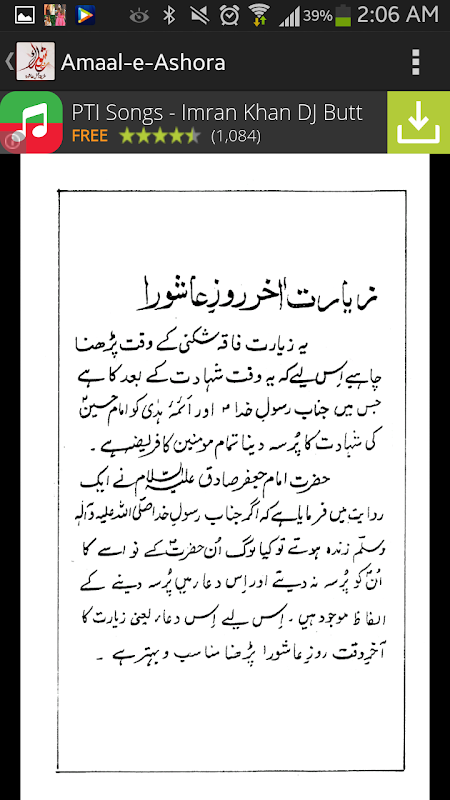 39% 2:06 AM
Amaal-e-Ashora
PTI Songs - Imran Khan DJ Butt
FREE (1,084)
زیارت آخر روزِ عاشورا
یہ زیارت فاقہ شکنی کے وقت پڑھنا
چاہیے اِس لیے کہ یہ وقت شہادت کے بعد کا ہے
جس میں جناب رسولِ خدا ؐ اور ائمۂ ہدیٰ کو امام حسینؑ
کی شہادت کا پُرسہ دینا تمام مومنین کا فریضہ ہے ۔
حضرت امام جعفر صادق علیہ السّلام نے ایک
روایت میں فرمایا ہے کہ اگر جناب رسولِ خدا صلّی اللہ علیہ وآلہٖ
وسلّم زندہ ہوتے تو کیا لوگ اُن حضرتؐ کے نواسے کا
اُنؐ کو پُرسہ نہ دیتے اور اِس دعا میں پُرسہ دینے کے
الفاظ موجود ہیں ۔ اِس لیے اِس دعا، یعنی زیارت کا
آخرِ وقت روزِ عاشورا پڑھنا مناسب و بہتر ہے ۔